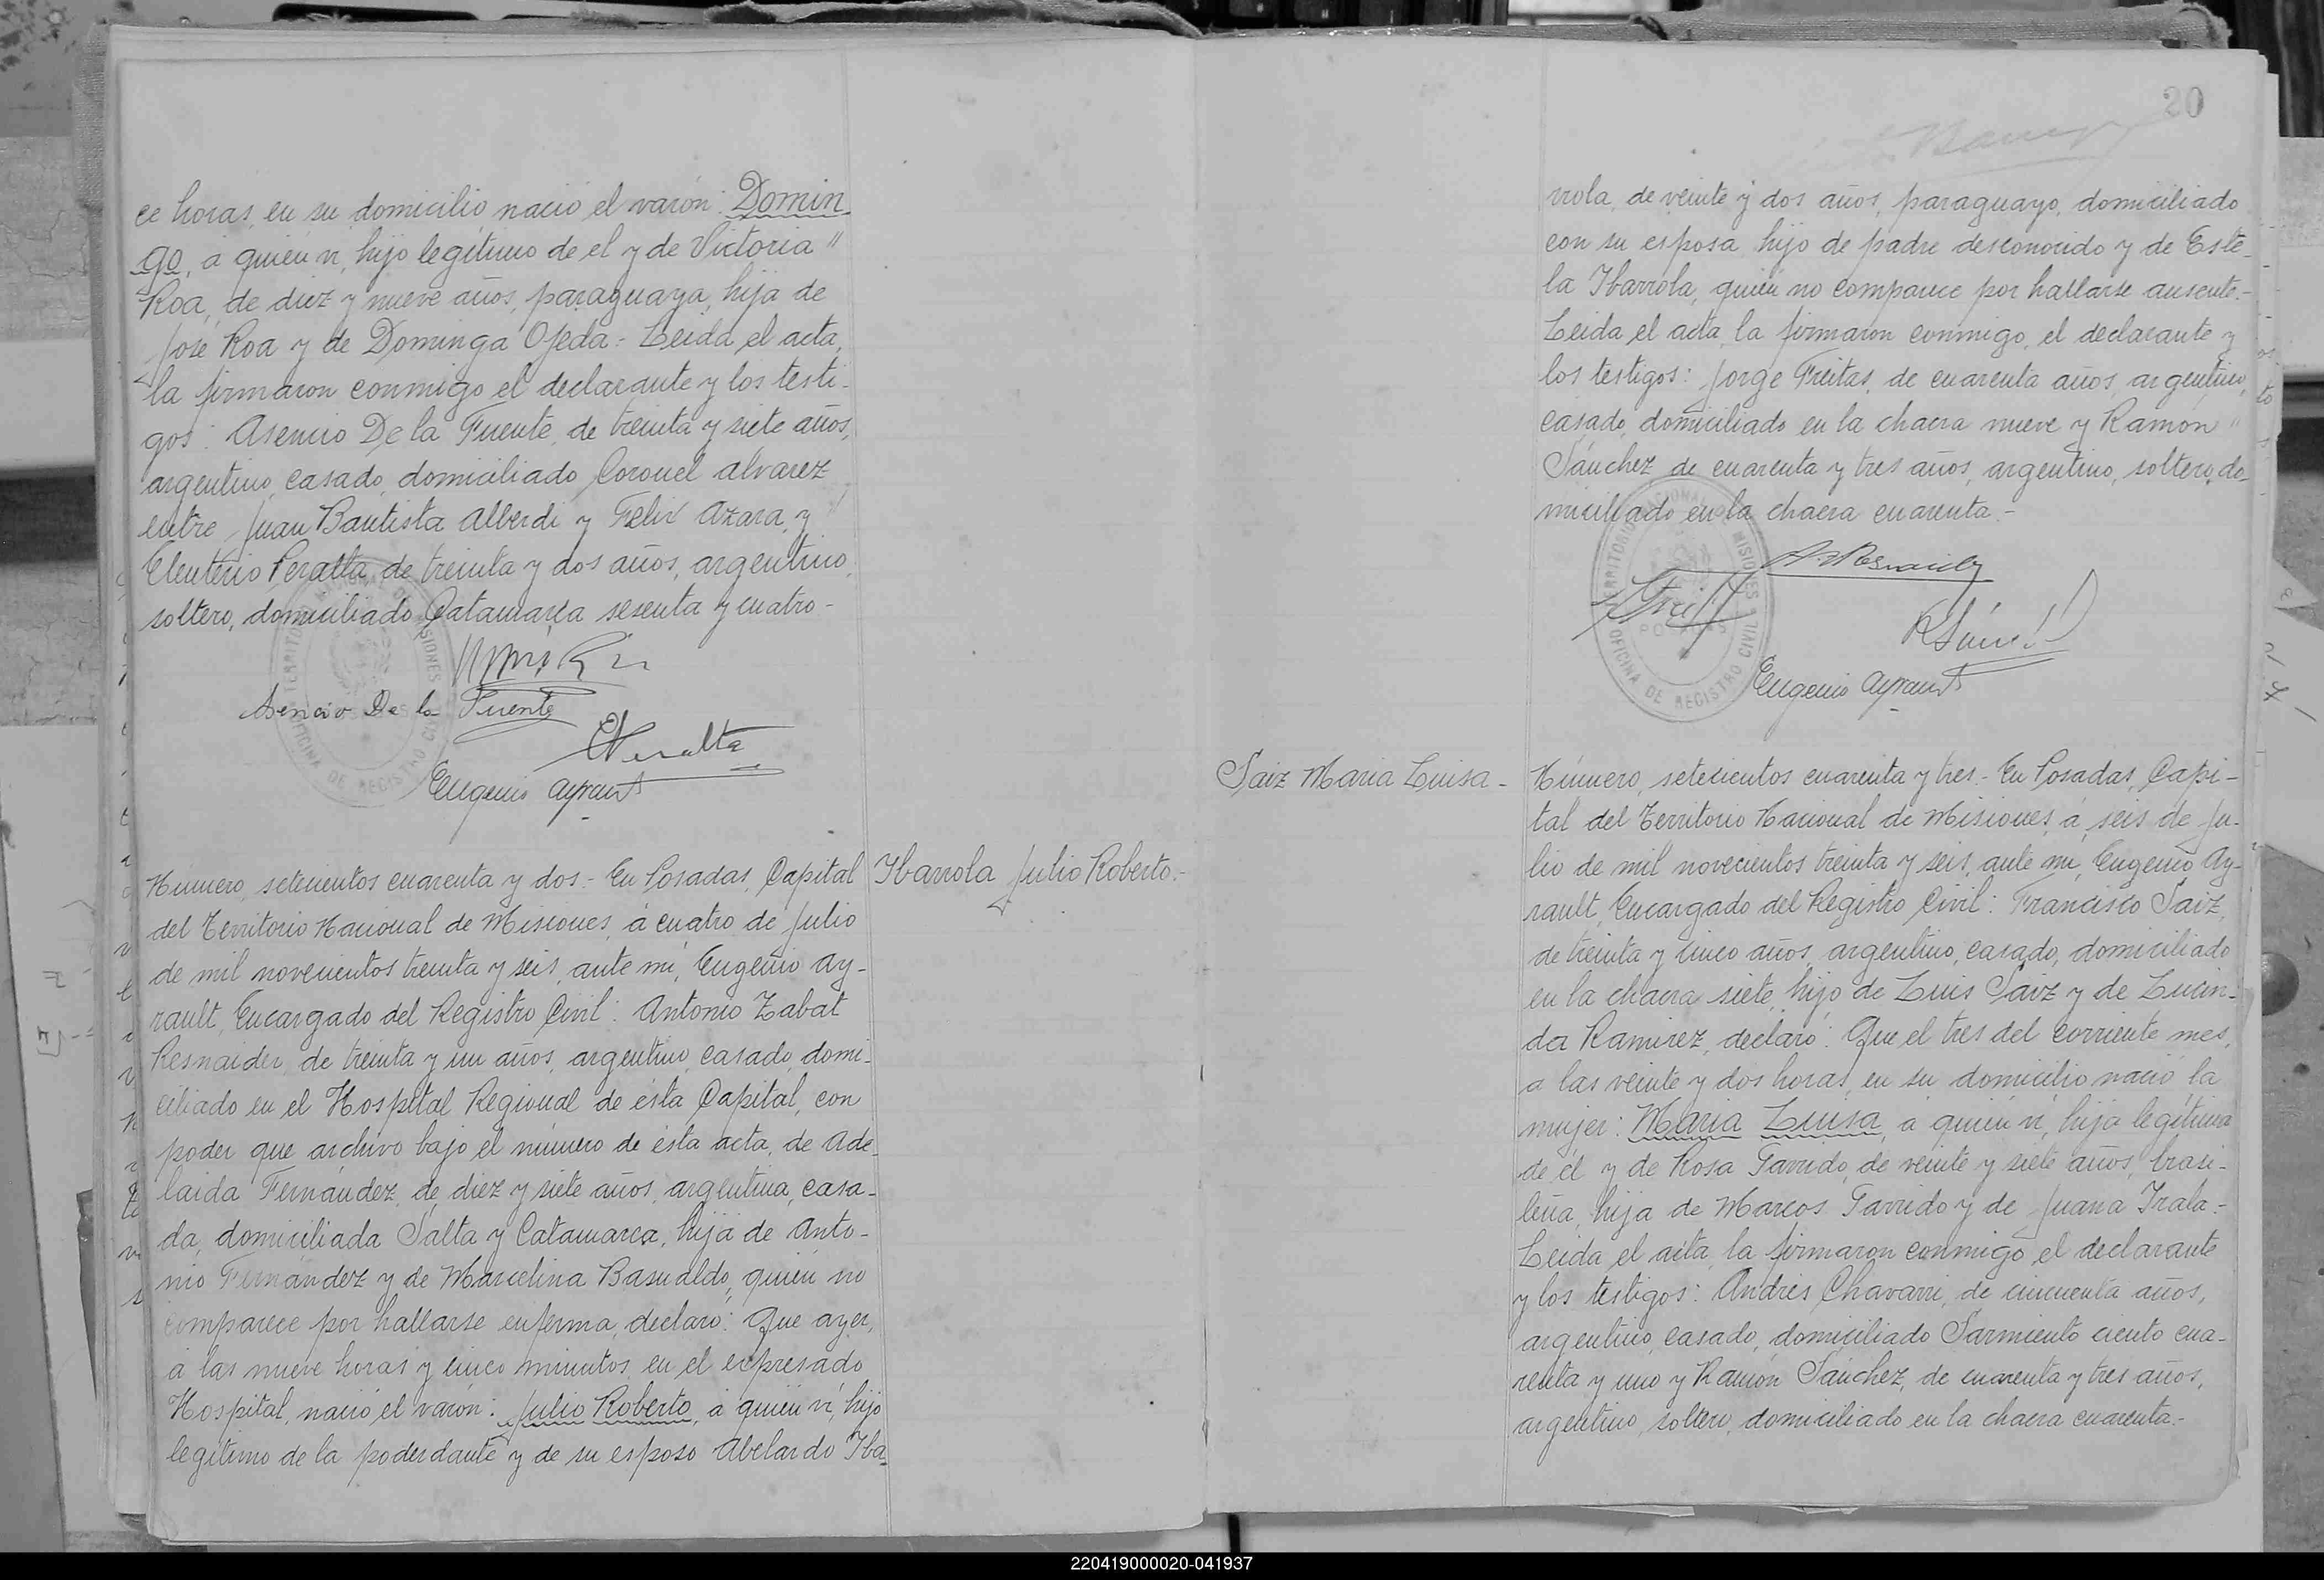 ce horas, en su domicilio nació el varón: Domin-
go, a quien vi, hijo legítimo de el y de Victoria "
Roa, de diez y nueve años, paraguaya, hija de
José Roa y de Dominga Ojeda.- Leida el acta,
la firmaron conmigo el declarante y los testi-
gos: Asencio De la Fuente, de treinta y siete años,
argentino, casado, domiciliado Coronel Alvarez
entre Juan Bautista Alberdi y Felix Azara, y
Eleuterio Peralta, de treinta y dos años, argentino,
soltero, domiciliado Catamarca sesenta y cuatro-
Asencio De la Fuente
EPeralta
Eugenio Ayrault
Número, setecientos cuarenta y dos.- En Posadas, Capital
Ibarrola Julio Roberto.-
del Territorio Nacional de Misiones, á cuatro de Julio
de mil novecientos treinta y seis, ante mi, Eugenio Ay-
rault, Encargado del Registro Civil: Antonio Zabat
Resnaider, de treinta y un años, argentino, casado, domi-
ciliado en el Hospital Regional de ésta Capital, con
poder que archivo bajo el número de ésta acta, de Ade-
laida Fernández, de diez y siete años, argentina, casa-
da, domiciliada Salta y Catamarca, hija de Anto-
nio Fernández y de Marcelina Basualdo, quien no
comparece por hallarse enferma, declaró: Que ayer,
á las nueve horas y cinco minutos, en el expresado
Hospital, nació el varón: Julio Roberto, á quien vi, hijo
legítimo de la poderdante y de su esposo Abelardo Iba-
20
rrola, de veinte y dos años, paraguayo, domiciliado
con su esposa, hijo de padre desconocido y de Este-
la Ibarrola, quien no comparece por hallarse ausente.-
Leida el acta, la firmaron conmigo, el declarante y
los testigos: Jorge Freitas, de cuarenta años, argentino,
casado, domiciliado en la chacra nueve y Ramon "
Sánchez, de cuarenta y tres años, argentino, soltero, do-
miciliado en la chacra cuarenta.-
TERRITORIO NACIONAL DE MISIONES
POSADAS
OFICINA DE REGISTRO CIVIL
Eugenio Ayrault
Saiz Maria Luisa-
Número, setecientos cuarenta y tres.- En Posadas, Capi-
tal del Territorio Nacional de Misiones, á seis de Ju-
lio de mil novecientos treinta y seis, ante mi, Eugenio Ay-
rault, Encargado del Registro Civil: Francisco Saiz,
de treinta y cinco años, argentino, casado, domiciliado
en la chacra siete, hijo de Luis Saiz y de Lucin-
da Ramirez, declaró: Que el tres del corriente mes,
a las veinte y dos horas, en su domicilio nació la
mujer: Maria Luisa, a quien vi, hija legítima
de él y de Rosa Garrido, de veinte y siete años, brasi-
leña, hija de Marcos Garrido y de Juana Irala.-
Leida el acta, la firmaron conmigo, el declarante
y los testigos: Andrés Chavarri, de cincuenta años,
argentino, casado, domiciliado Sarmiento ciento cua-
renta y uno y Ramón Sánchez, de cuarenta y tres años,
argentino, soltero, domiciliado en la chacra cuarenta.-
220419000020-041937